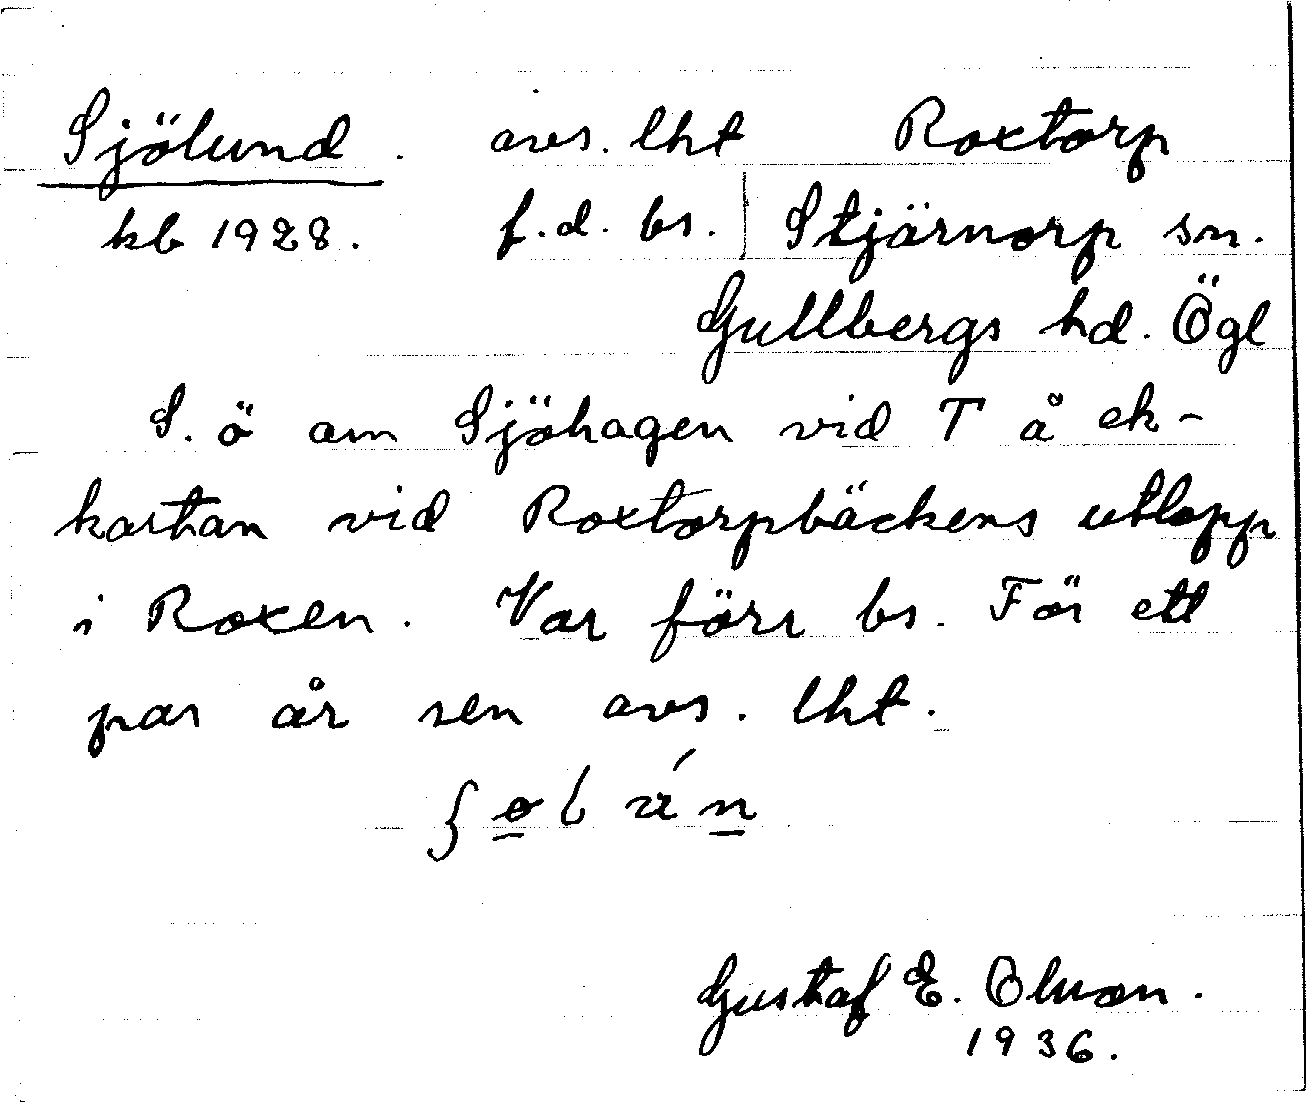 Sjölund. avs. lht Roxtorp
kb 1928. f.d. bs. Stjärnorp sn.
Gullbergs hd. Ögl
S. ö om Sjöhagen vid T å ek-
kartan vid Roxtorpbäckens utlopp
i Roxen. Var förr bs. För ett
par år sen avs. lht.
Gustaf E. Olsson.
1936.